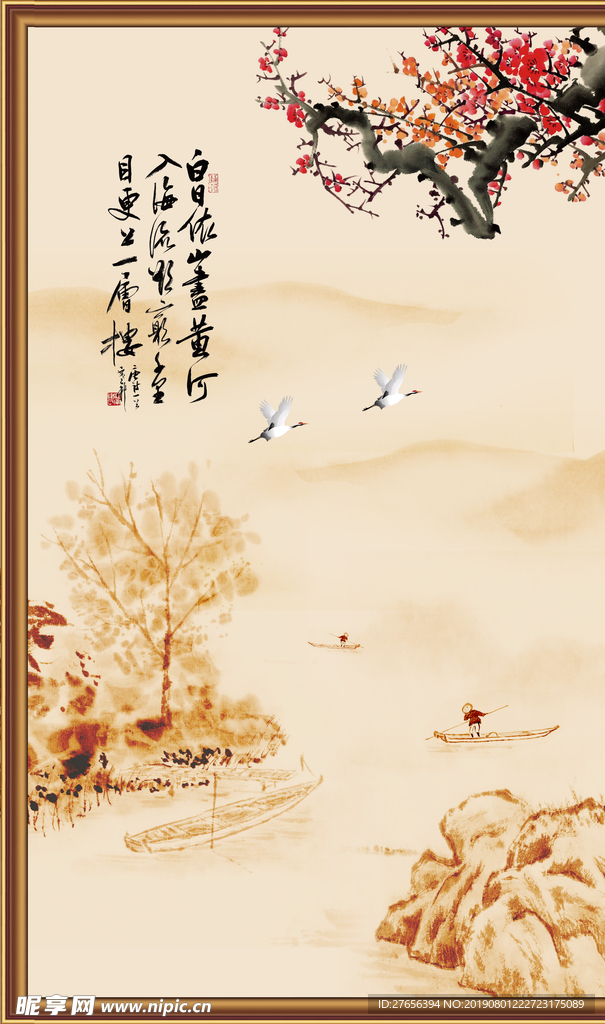 白日依山盡黄河
入海流欲窮千里
目更上一層樓
昵享网 www.nipic.cn
ID:27656394 NO:20190801222723175089